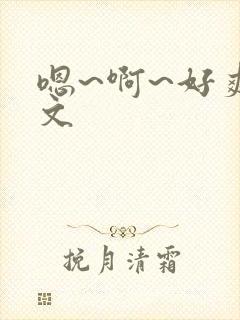 嗯~啊~好爽
文
挽月清霜